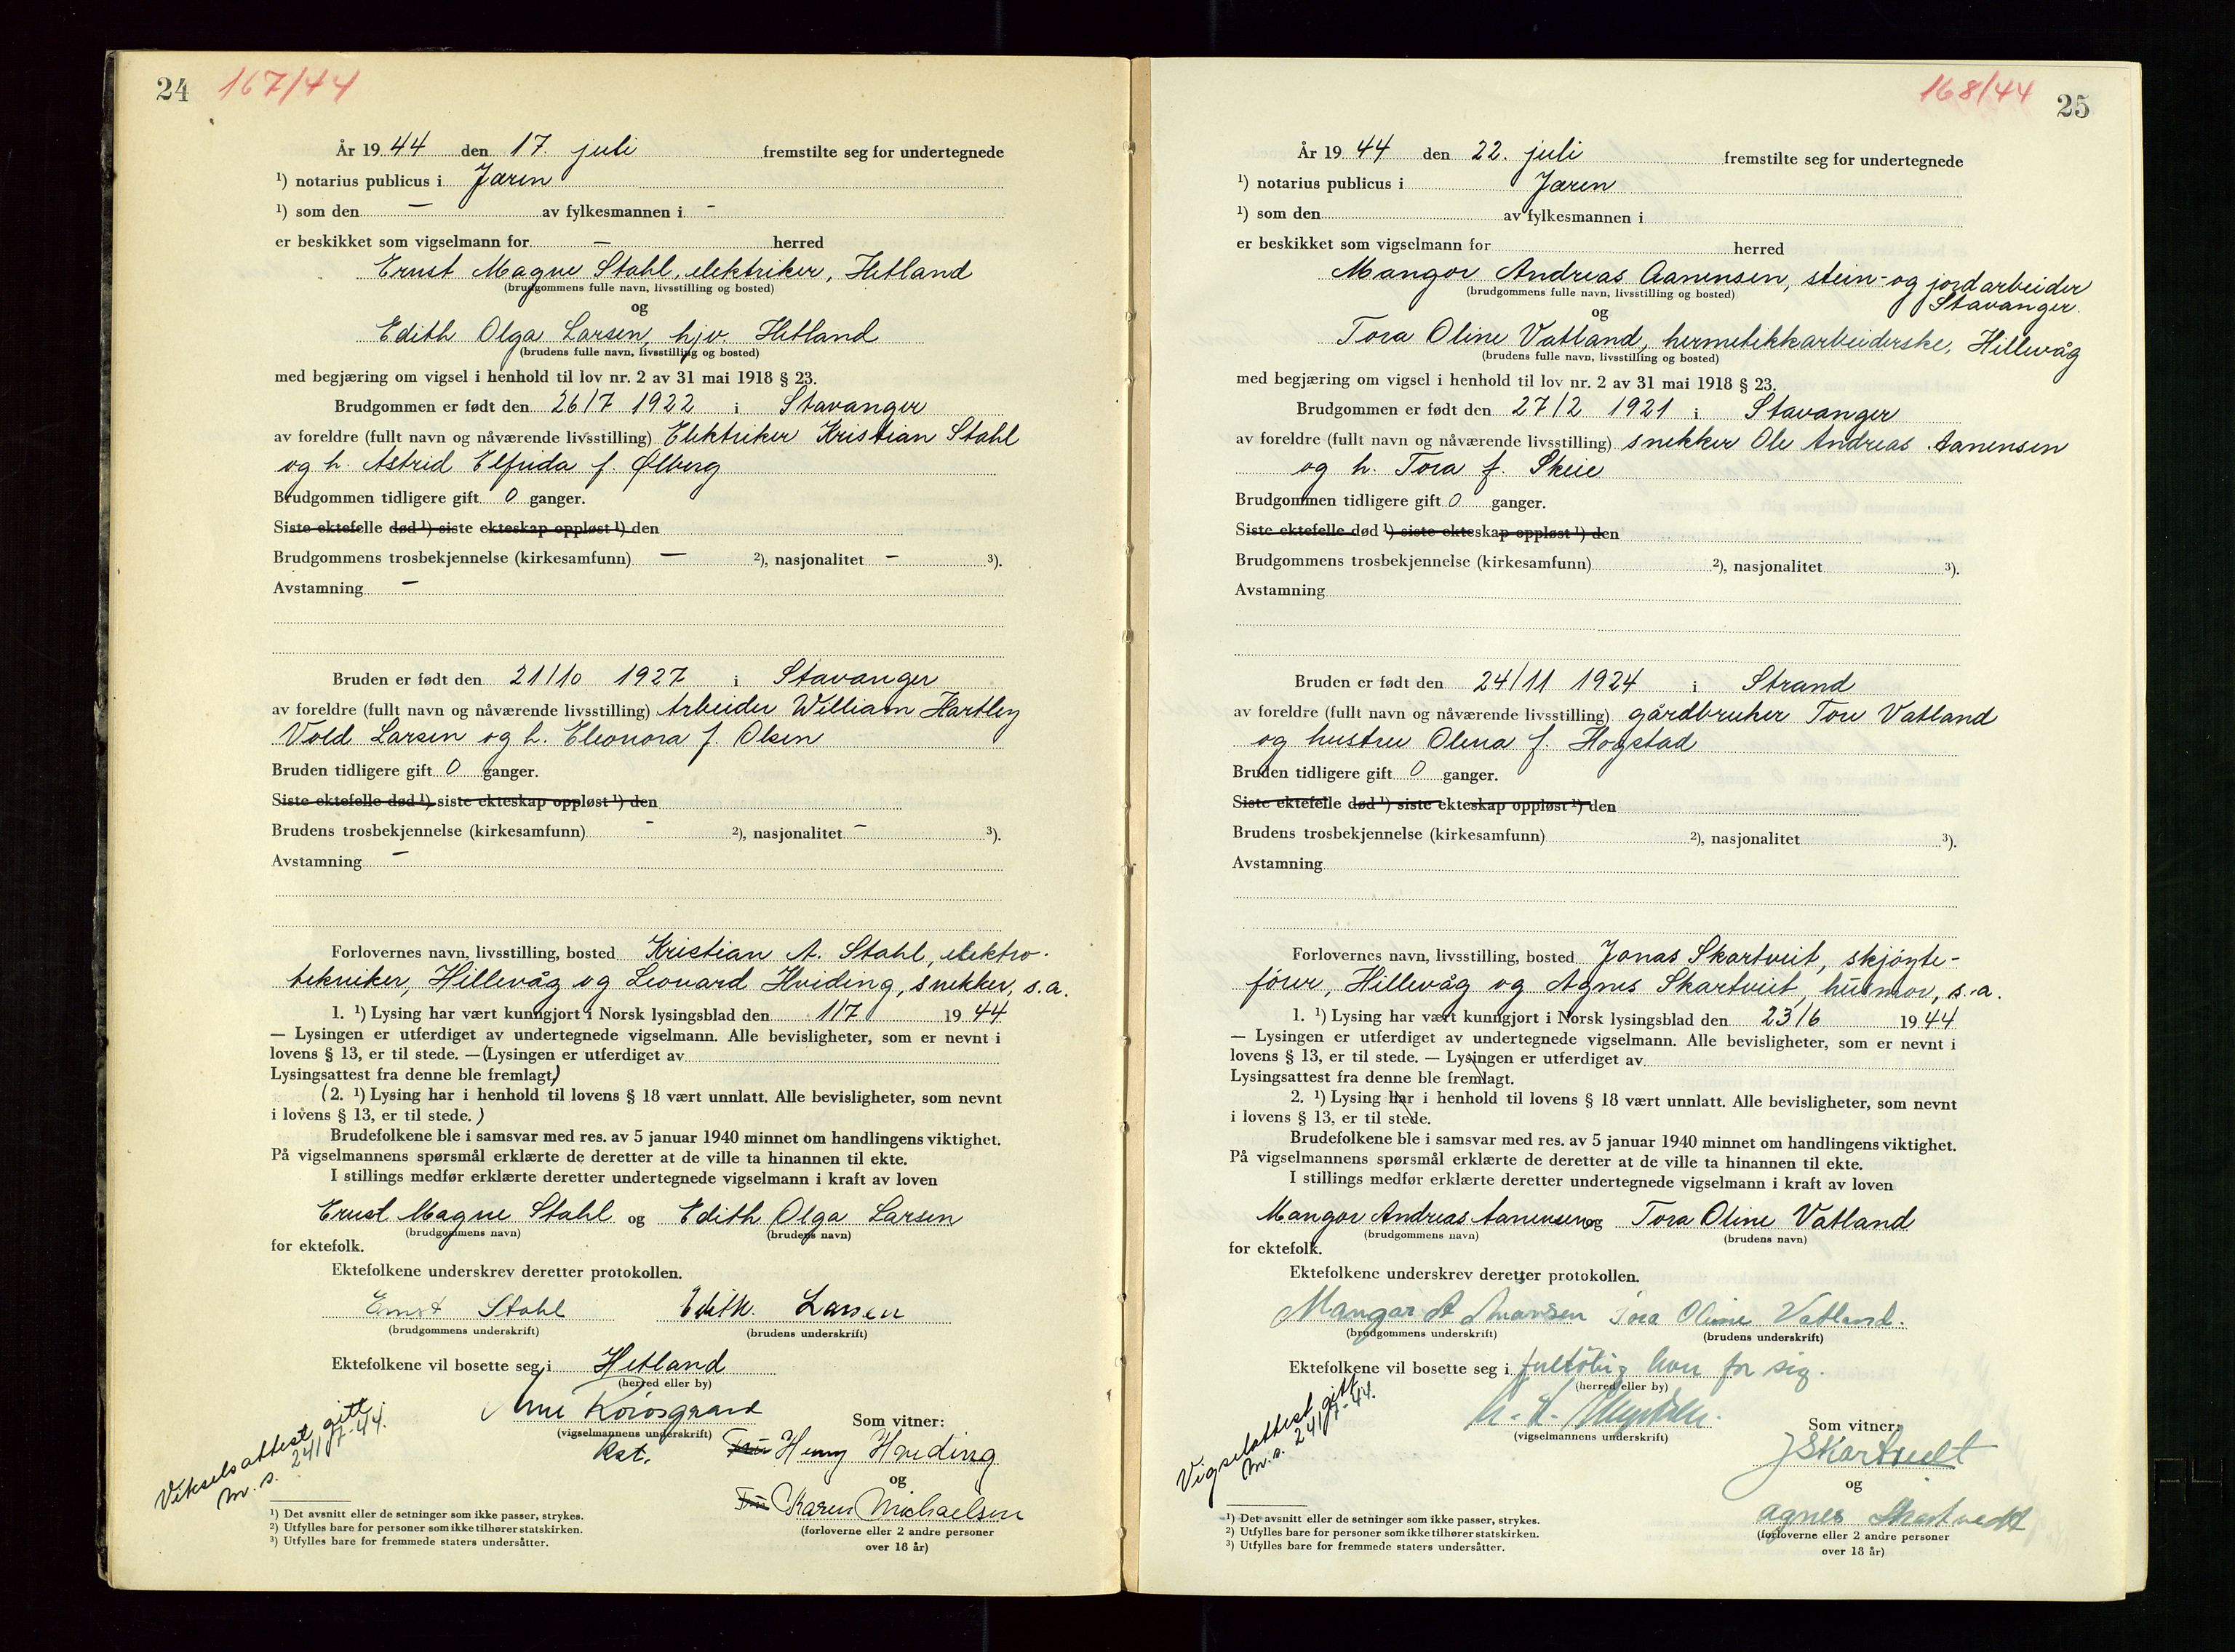 24 167/44
År 1944 den 17. juli fremstilte seg for undertegnede
¹) notarius publicus i Jæren
¹) som den — av fylkesmannen i -
er beskikket som vigselmann for — herred
Ernst Magne Stahl, elektriker, Hetland
(brudgommens fulle navn, livsstilling og bosted)
og
Edith Olga Larsen, hjv. Hetland
(brudens fulle navn, livsstilling og bosted)
med begjæring om vigsel i henhold til lov nr. 2 av 31 mai 1918 § 23.
Brudgommen er født den 26/7 1922 i Stavanger
av foreldre (fullt navn og nåværende livsstilling) Elektriker Kristian Stahl
og h. Astrid Elfrida f. Ølberg
Brudgommen tidligere gift 0 ganger.
Siste ektefelle død ¹) siste ekteskap oppløst ¹) den
Brudgommens trosbekjennelse (kirkesamfunn) — ²), nasjonalitet – ³).
Avstamning —
Bruden er født den 21/10 1927 i Stavanger
av foreldre (fullt navn og nåværende livsstilling) Arbeider William Hartley
Vold Larsen og h. Eleonora f. Olsen
Bruden tidligere gift 0 ganger.
Siste ektefelle død ¹) siste ekteskap oppløst ¹) den
Brudens trosbekjennelse (kirkesamfunn) - ²), nasjonalitet – ³).
Avstamning –
Forlovernes navn, livsstilling, bosted Kristian A. Stahl, elektro-
tekniker, Hillevåg og Leonard Hviding, snekker, s.a.
1. ¹) Lysing har vært kunngjort i Norsk lysingsblad den 1/7 1944
— Lysingen er utferdiget av undertegnede vigselmann. Alle bevisligheter, som er nevnt i
lovens § 13, er til stede. — (Lysingen er utferdiget av
Lysingsattest fra denne ble fremlagt.)
(2. ¹) Lysing har i henhold til lovens § 18 vært unnlatt. Alle bevisligheter, som nevnt
i lovens § 13, er til stede.)
Brudefolkene ble i samsvar med res. av 5 januar 1940 minnet om handlingens viktighet.
På vigselmannens spørsmål erklærte de deretter at de ville ta hinannen til ekte.
I stillings medfør erklærte deretter undertegnede vigselmann i kraft av loven
Ernst Magne Stahl og Edith Olga Larsen
(brudgommens navn) (brudens navn)
for ektefolk.
Ektefolkene underskrev deretter protokollen.
Ernst Stahl Edith Larsen
(brudgommens underskrift) (brudens underskrift)
Ektefolkene vil bosette seg i Hetland
(herred eller by)
Som vitner:
(vigselmannens underskrift)
Kst. Fru Henny Hviding
og
Fru Karen Michaelsen
(forloverne eller 2 andre personer
over 18 år)
Vikselsattest gitt
m. s. 24/7-44.
¹) Det avsnitt eller de setninger som ikke passer, strykes.
²) Utfylles bare for personer som ikke tilhører statskirken.
³) Utfylles bare for fremmede staters undersåtter.
168/44 25
År 1944 den 22. juli fremstilte seg for undertegnede
¹) notarius publicus i Jæren
¹) som den av fylkesmannen i
er beskikket som vigselmann for herred
Mangor Andreas Aanensen, stein- og jordarbeider
Stavanger.
(brudgommens fulle navn, livsstilling og bosted)
og
Tora Oline Vatland, hermetikkarbeiderske, Hillevåg
(brudens fulle navn, livsstilling og bosted)
med begjæring om vigsel i henhold til lov nr. 2 av 31 mai 1918 § 23.
Brudgommen er født den 27/2 1921 i Stavanger
av foreldre (fullt navn og nåværende livsstilling) snekker Ole Andreas Aanensen
og h. Tora f. Skeie
Brudgommen tidligere gift 0 ganger.
Siste ektefelle død ¹) siste ekteskap oppløst ¹) den
Brudgommens trosbekjennelse (kirkesamfunn) ²), nasjonalitet ³).
Avstamning
Bruden er født den 24/11 1924 i Strand
av foreldre (fullt navn og nåværende livsstilling) gårdbruker Tore Vatland
og hustru Olena f. Hogstad
Bruden tidligere gift 0 ganger.
Siste ektefelle død ¹) siste ekteskap oppløst ¹) den
Brudens trosbekjennelse (kirkesamfunn) ²), nasjonalitet ³).
Avstamning
Forlovernes navn, livsstilling, bosted Jonas Skartveit, skjøyte-
fører, Hillevåg og Agnes Skartveit, husmor, s.a.
1. ¹) Lysing har vært kunngjort i Norsk lysingsblad den 23/6 1944
— Lysingen er utferdiget av undertegnede vigselmann. Alle bevisligheter, som er nevnt i
lovens § 13, er til stede. — Lysingen er utferdiget av
Lysingsattest fra denne ble fremlagt.
2. ¹) Lysing har i henhold til lovens § 18 vært unnlatt. Alle bevisligheter, som nevnt
i lovens § 13, er til stede.
Brudefolkene ble i samsvar med res. av 5 januar 1940 minnet om handlingens viktighet.
På vigselmannens spørsmål erklærte de deretter at de ville ta hinannen til ekte.
I stillings medfør erklærte deretter undertegnede vigselmann i kraft av loven
Mangor Andreas Aanensen og Tora Oline Vatland
(brudgommens navn) (brudens navn)
for ektefolk.
Ektefolkene underskrev deretter protokollen.
Mangor A Aanensen Tora Oline Vatland.
(brudgommens underskrift) (brudens underskrift)
Ektefolkene vil bosette seg i hver for sig.
(herred eller by)
(vigselmannens underskrift) Som vitner:
J Skartveit
og
Agnes Skartvedt
(forloverne eller 2 andre personer
over 18 år)
Vigselattest gitt
m. s. 24/7-44.
¹) Det avsnitt eller de setninger som ikke passer, strykes.
²) Utfylles bare for personer som ikke tilhører statskirken.
³) Utfylles bare for fremmede staters undersåtter.